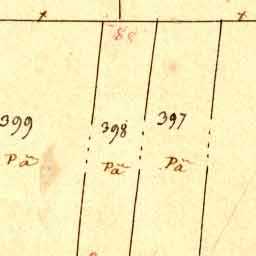 88
399
398
397
Pã
Pã
Pã